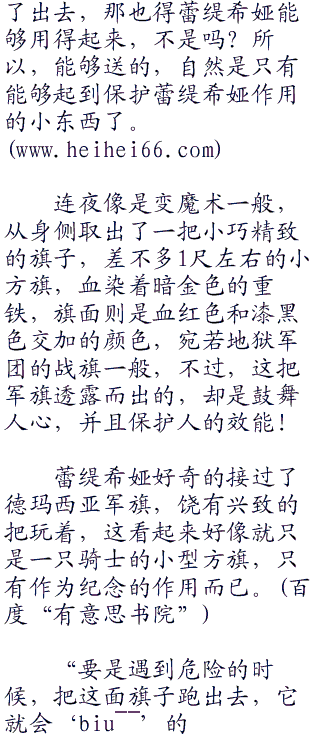 了出去，那也得蕾缇希娅能
够用得起来，不是吗？所
以，能够送的，自然是只有
能够起到保护蕾缇希娅作用
的小东西了。
(www.heihei66.com)
连夜像是变魔术一般，
从身侧取出了一把小巧精致
的旗子，差不多1尺左右的小
方旗，血染着暗金色的重
铁，旗面则是血红色和漆黑
色交加的颜色，宛若地狱军
团的战旗一般，不过，这把
军旗透露而出的，却是鼓舞
人心，并且保护人的效能！
蕾缇希娅好奇的接过了
德玛西亚军旗，饶有兴致的
把玩着，这看起来好像就只
是一只骑士的小型方旗，只
有作为纪念的作用而已。(百
度“有意思书院”)
“要是遇到危险的时
候，把这面旗子跑出去，它
就会‘biu¯¯’的